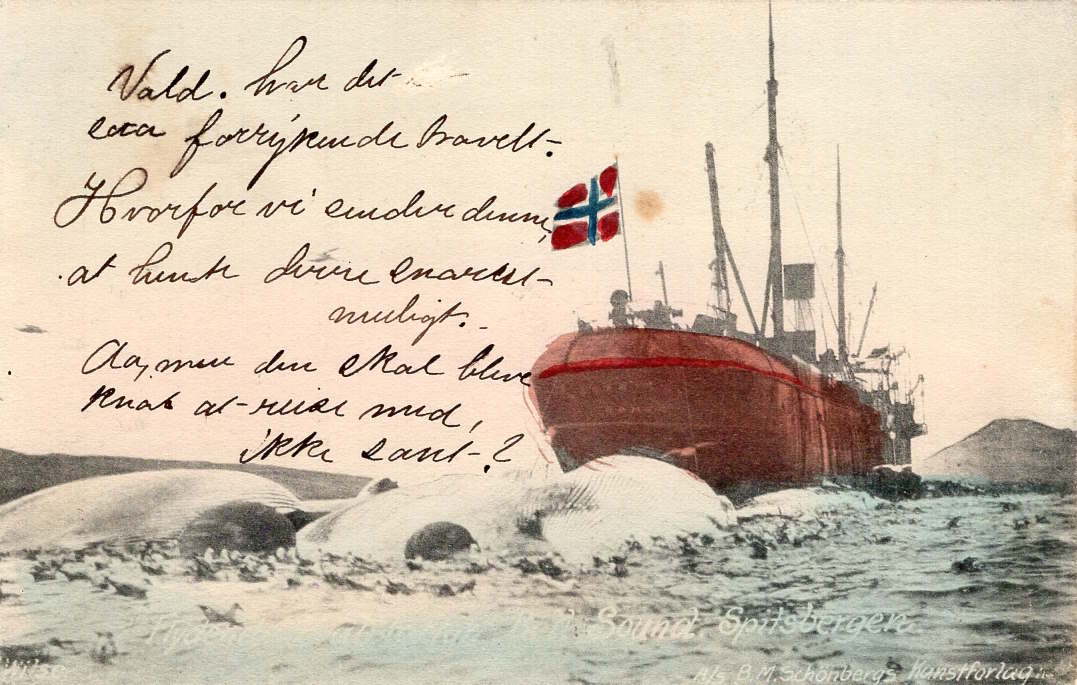 Vald. har det
saa forrykende travelt.
Hvorfor vi sender denne,
at hente dem snarest
muligt.
Aa, men den skal blive
knak at reise med,
ikke sant?
Sound. Spitsbergen.
Wilse
A/s B.M. Schønbergs Kunstforlag